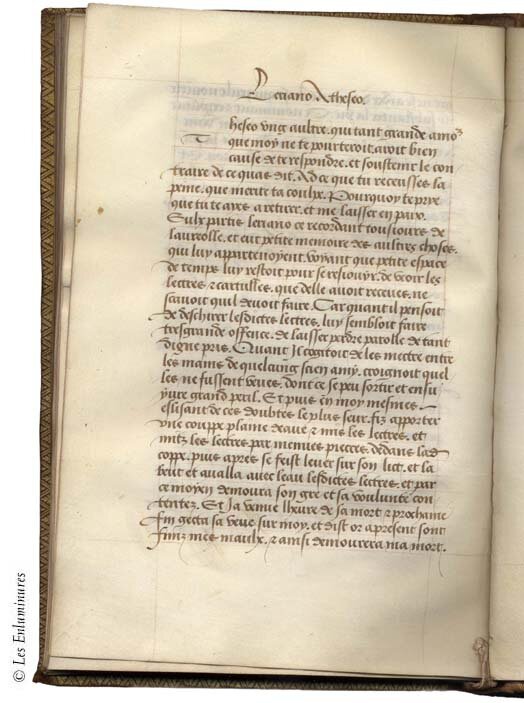 Leriano A theseo.
heseo ung aultre, qui tant grande amo
T que moy ne te porteroit, avoit bien
cause de te respondre, et soustenir le con
traire de ce quas dit. Ad ce que tu recenses la
peine, que merite ta coulpe. Pourquoy te prye
que tu te ayes a retirer, et me laisser en paix.
Sulx partis leriano ce recordant tousiours de
laureolle, et eut petite memoire des aultres choses,
qui luy appartenoyent, voyant que petite espace
de temps luy restoit pour se resiouyr, de veoir les
lettres & cartulles, que delle avoit receues, ne
scavoit quil devoit faire. Car quant il pensoit
de deschirer lesdictes lettres, luy sembloit faire
tresgrande offence, de laisser perdre parolle de tant
digne pris. Quant Il cogitoit de les mectre entre
les mains de quelcung sien amy, croignoit quel
les ne fussent veues, dont ce peu sortir et ensu
yvre grand peril. Et puis en moy mesmes
eslisant de ces doubtes le plus seur, fiz apporter
une couppe plaine deaue & mis les lectres, et
mitz les lectres par menues pieces, dedans lad
coppe, puis apres se feist lever sur son lict, et la
beut et avalla avec leau lesdictes lettres, et par
ce moyen demoura son gre et sa voulunte con
tentez. Et Ja venue lheure de sa mort & prochaine
fin gecta sa veue sur moy, et dist or apresent sont
finiz mes maulx, & ainsi demourera ma mort.
© Les Enluminures